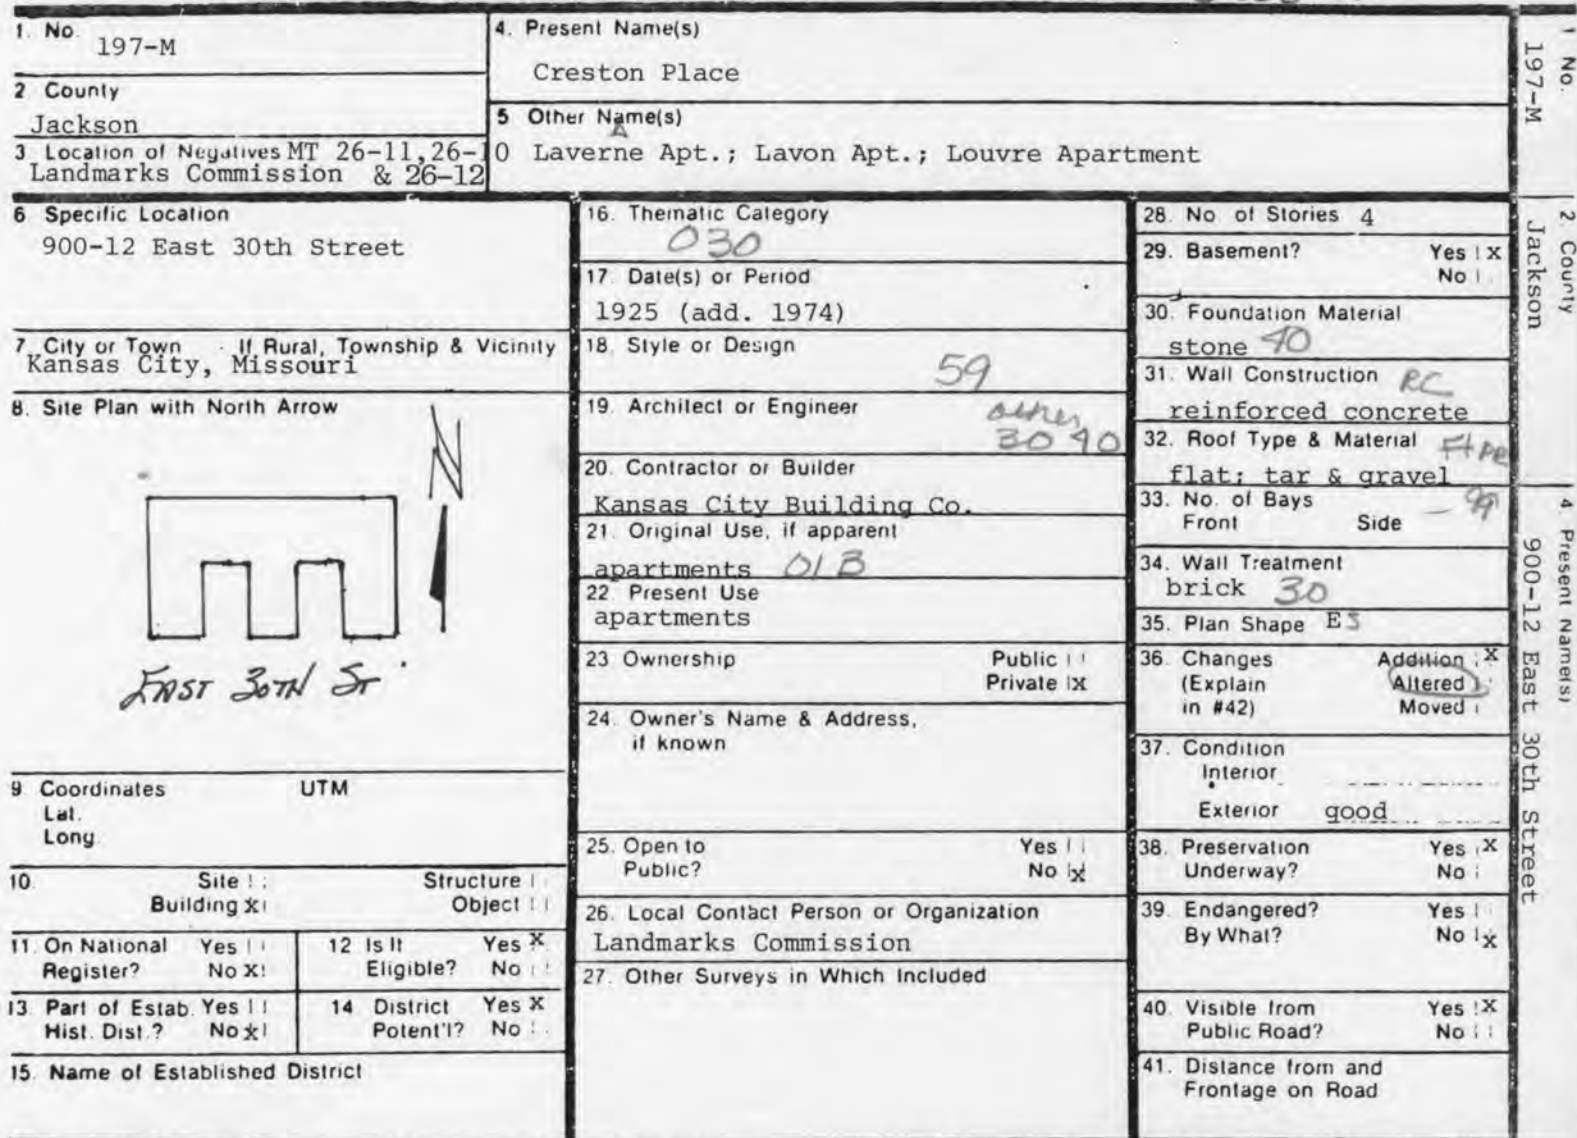 1. No. 197-M
2 County
Jackson
3 Location of Negatives MT 26-11,26-10
Landmarks Commission & 26-12
4. Present Name(s)
Creston Place
5 Other Name(s)
Laverne Apt.; Lavon Apt.; Louvre Apartment
6 Specific Location
900-12 East 30th Street
7. City or Town If Rural, Township & Vicinity
Kansas City, Missouri
8. Site Plan with North Arrow
N
EAST 30TH ST
9 Coordinates UTM
Lat.
Long.
10. Site Structure
Building X Object
11. On National Yes
Register? No X
12 Is It Yes X
Eligible? No
13. Part of Estab. Yes
Hist. Dist.? No X
14 District Yes X
Potent'l? No
15. Name of Established District
16. Thematic Category
030
17. Date(s) or Period
1925 (add. 1974)
18. Style or Design
59
19. Architect or Engineer
30 40
20. Contractor or Builder
Kansas City Building Co.
21. Original Use, if apparent
apartments 01B
22. Present Use
apartments
23. Ownership Public
Private X
24. Owner's Name & Address,
if known
25. Open to Yes
Public? No X
26. Local Contact Person or Organization
Landmarks Commission
27. Other Surveys in Which Included
28. No. of Stories 4
29. Basement? Yes X
No
30. Foundation Material
stone 40
31. Wall Construction RC
reinforced concrete
32. Roof Type & Material
flat; tar & gravel
33. No. of Bays
Front Side 99
34. Wall Treatment
brick 30
35. Plan Shape E
36. Changes Addition X
(Explain Altered
in #42) Moved
37. Condition
Interior
Exterior good
38. Preservation Yes X
Underway? No
39. Endangered? Yes
By What? No X
40. Visible from Yes X
Public Road? No
41. Distance from and
Frontage on Road
1 No.
197-M
2 County
Jackson
4 Present Name(s)
900-12 East 30th Street